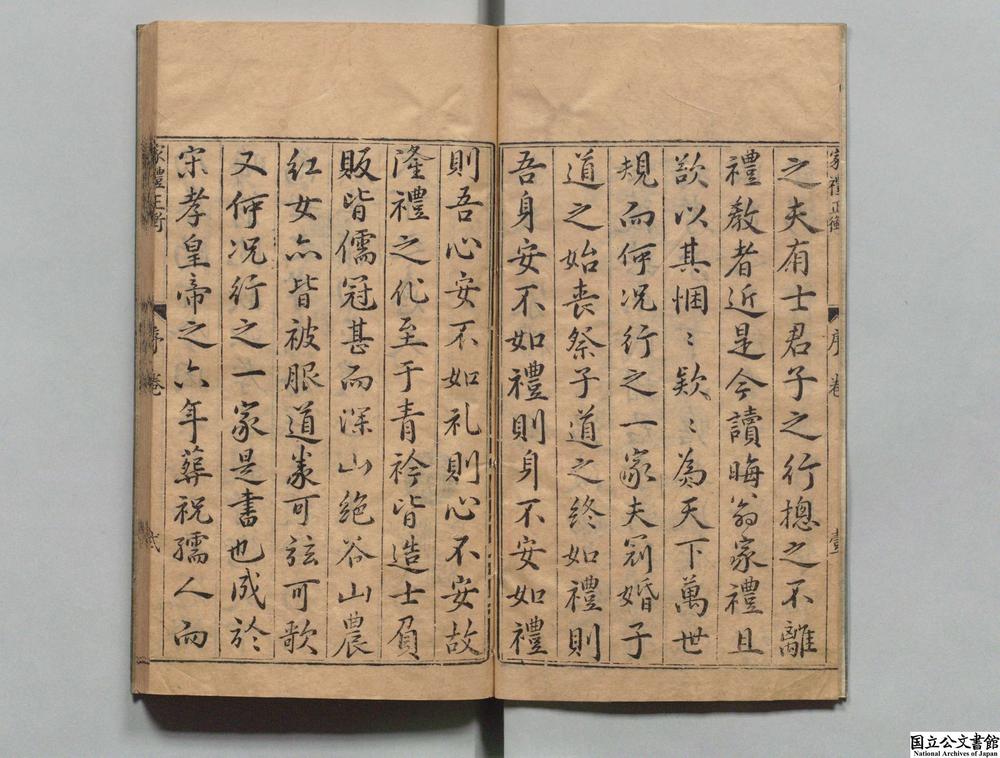 家禮正衡
序卷
壹
之夫有士君子之行摠之不離
禮教者近是今讀晦翁家禮且
欲以其悃〻欵〻為天下萬世
規而何况行之一家夫冠婚子
道之始喪祭子道之終如禮則
吾身安不如禮則身不安如禮
則吾心安不如礼則心不安故
隆禮之化至于青衿皆造士負
販皆儒冠甚而深山絶谷山農
紅女亦皆被服道義可弦可歌
又何况行之一家是書也成於
宋孝皇帝之六年葬祝孺人而
家禮正衡
序卷
弍
国立公文書館
National Archives of Japan